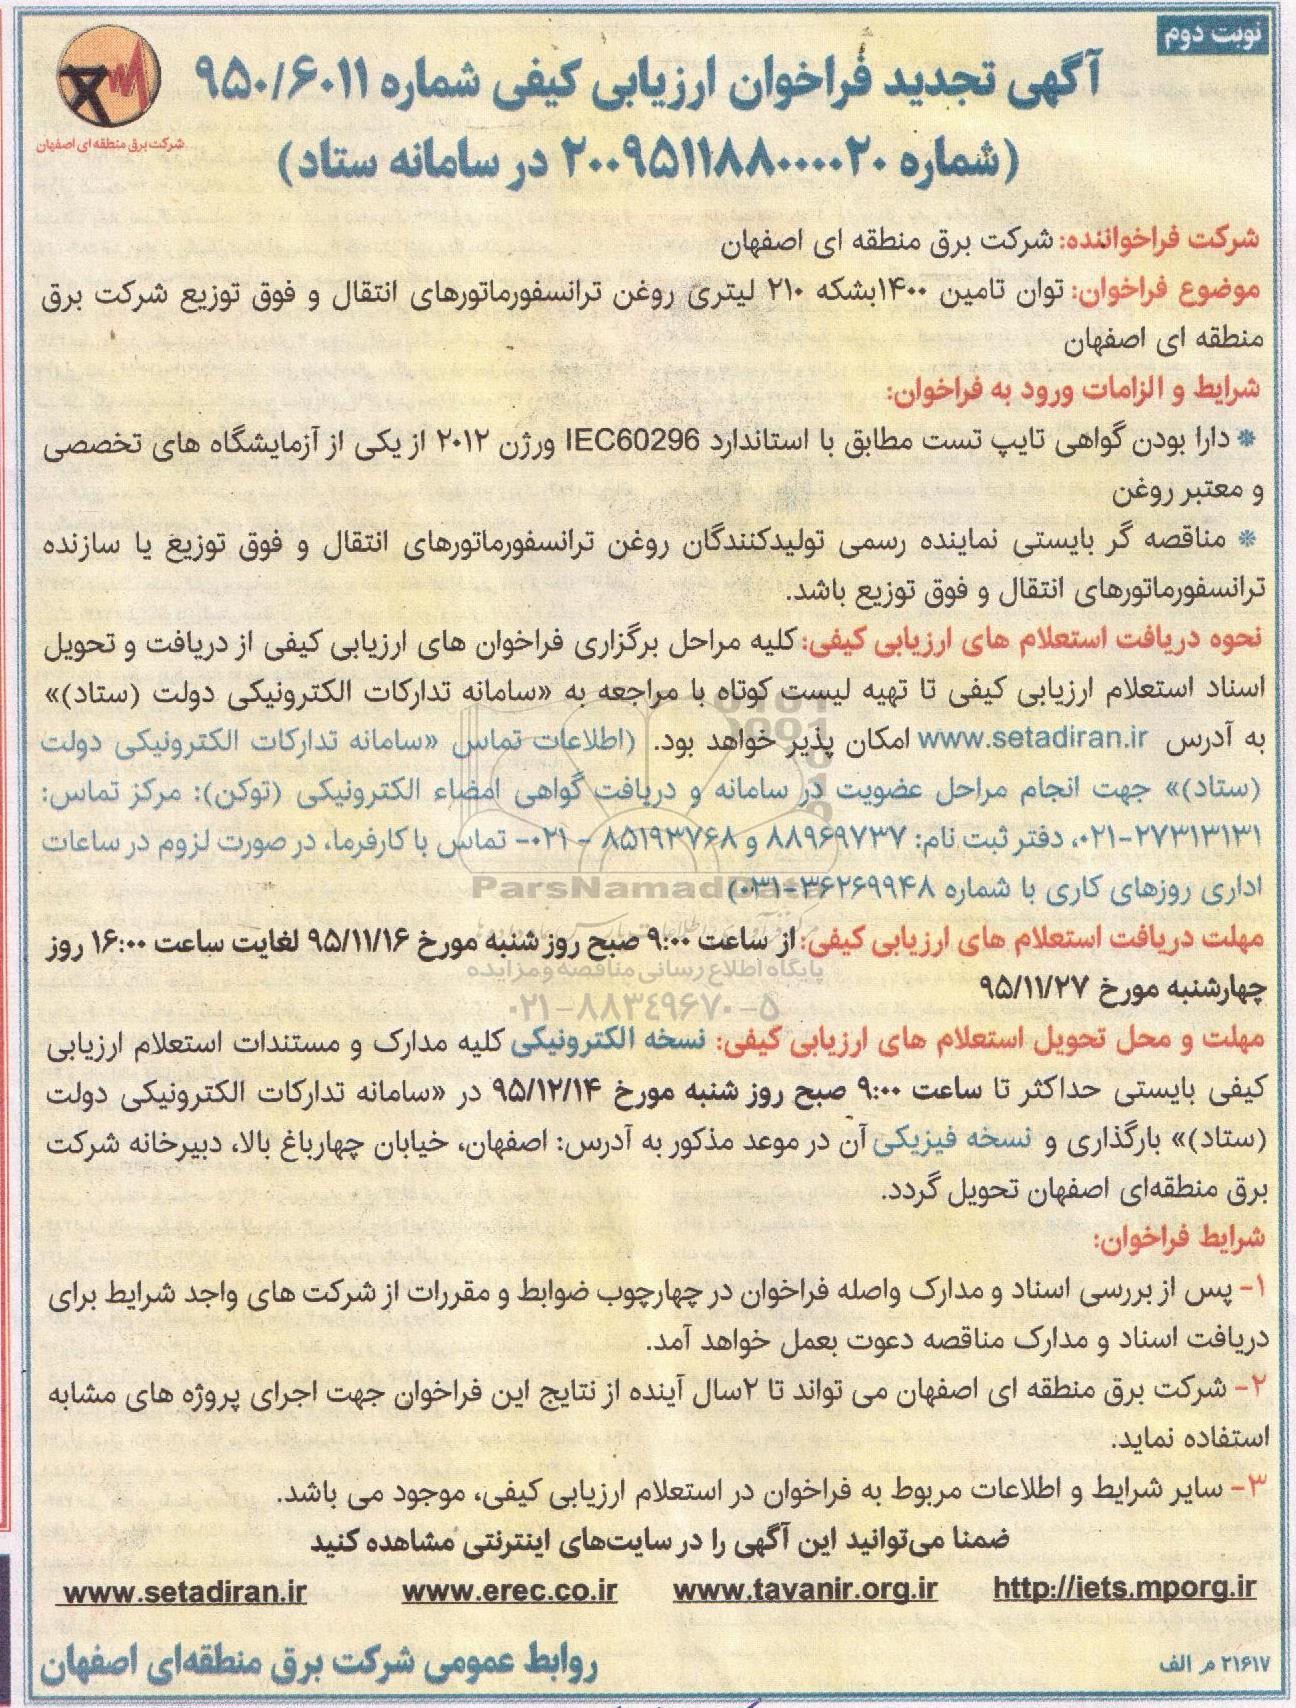 نوبت دوم
آگهی تجدید فراخوان ارزیابی کیفی شماره ۹۵۰/۶۰۱۱
(شماره ۲۰۰۹۵۱۱۸۸۰۰۰۰۲۰ در سامانه ستاد)
شرکت برق منطقه ای اصفهان
شرکت فراخواننده: شرکت برق منطقه ای اصفهان
موضوع فراخوان: توان تامین ۱۴۰۰بشکه ۲۱۰ لیتری روغن ترانسفورماتورهای انتقال و فوق توزیع شرکت برق
منطقه ای اصفهان
شرایط و الزامات ورود به فراخوان:
* دارا بودن گواهی تایپ تست مطابق با استاندارد IEC60296 ورژن ۲۰۱۲ از یکی از آزمایشگاه های تخصصی
و معتبر روغن
* مناقصه گر بایستی نماینده رسمی تولیدکنندگان روغن ترانسفورماتورهای انتقال و فوق توزیع یا سازنده
ترانسفورماتورهای انتقال و فوق توزیع باشد.
نحوه دریافت استعلام های ارزیابی کیفی: کلیه مراحل برگزاری فراخوان های ارزیابی کیفی از دریافت و تحویل
اسناد استعلام ارزیابی کیفی تا تهیه لیست کوتاه با مراجعه به «سامانه تدارکات الکترونیکی دولت (ستاد)»
به آدرس www.setadiran.ir امکان پذیر خواهد بود. (اطلاعات تماس «سامانه تدارکات الکترونیکی دولت
(ستاد)» جهت انجام مراحل عضویت در سامانه و دریافت گواهی امضاء الکترونیکی (توکن): مرکز تماس:
۰۲۱-۲۷۳۱۳۱۳۱، دفتر ثبت نام: ۸۸۹۶۹۷۳۷ و ۸۵۱۹۳۷۶۸ - ۰۲۱- تماس با کارفرما، در صورت لزوم در ساعات
اداری روزهای کاری با شماره ۳۶۲۶۹۹۴۸-۰۳۱)
ParsNamadData
مهلت دریافت استعلام های ارزیابی کیفی: از ساعت ۹:۰۰ صبح روز شنبه مورخ ۹۵/۱۱/۱۶ لغایت ساعت ۱۶:۰۰ روز
پایگاه اطلاع رسانی مناقصه و مزایده
چهارشنبه مورخ ۹۵/۱۱/۲۷
۰۲۱-۸۸۳۴۹۶۷۰-۵
مهلت و محل تحویل استعلام های ارزیابی کیفی: نسخه الکترونیکی کلیه مدارک و مستندات استعلام ارزیابی
کیفی بایستی حداکثر تا ساعت ۹:۰۰ صبح روز شنبه مورخ ۹۵/۱۲/۱۴ در «سامانه تدارکات الکترونیکی دولت
(ستاد)» بارگذاری و نسخه فیزیکی آن در موعد مذکور به آدرس: اصفهان، خیابان چهارباغ بالا، دبیرخانه شرکت
برق منطقه‌ای اصفهان تحویل گردد.
شرایط فراخوان:
۱- پس از بررسی اسناد و مدارک واصله فراخوان در چهارچوب ضوابط و مقررات از شرکت های واجد شرایط برای
دریافت اسناد و مدارک مناقصه دعوت بعمل خواهد آمد.
۲- شرکت برق منطقه ای اصفهان می تواند تا ۲سال آینده از نتایج این فراخوان جهت اجرای پروژه های مشابه
استفاده نماید.
۳- سایر شرایط و اطلاعات مربوط به فراخوان در استعلام ارزیابی کیفی، موجود می باشد.
ضمنا می‌توانید این آگهی را در سایت‌های اینترنتی مشاهده کنید
http://iets.mporg.ir www.tavanir.org.ir www.erec.co.ir www.setadiran.ir
۲۱۶۱۷ م الف
روابط عمومی شرکت برق منطقه‌ای اصفهان